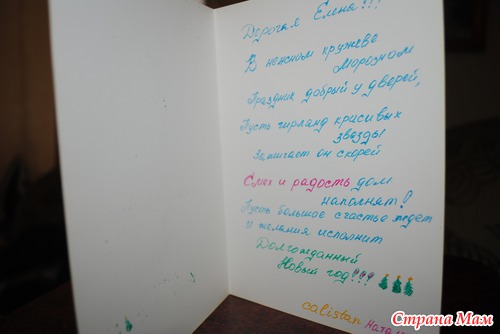 Дорогая Елена!!!
В нежном кружеве
Морозном
Праздник добрый у дверей,
Пусть гирлянд красивых
звезды
Зажигает он скорей
Смех и радость дом
наполнят!
Пусть большое счастье ждет
И желания исполнит
Долгожданный
Новый год!!!
calistan
Страна Мам